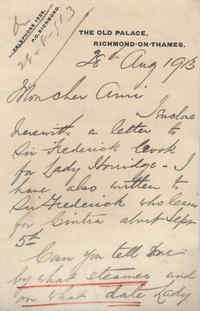 TELEPHONE 1328,
P.O. RICHMOND.
THE OLD PALACE,
RICHMOND-ON-THAMES.
28th Aug 1913
Mon cher Ami
I enclose
herewith a letter to
Sir Frederick Cook
for Lady Horridge - I
have also written to
Sir Frederick who leaves
for Cintra about Sept
5th
Can you tell me
by what steamer and
on what date Lady